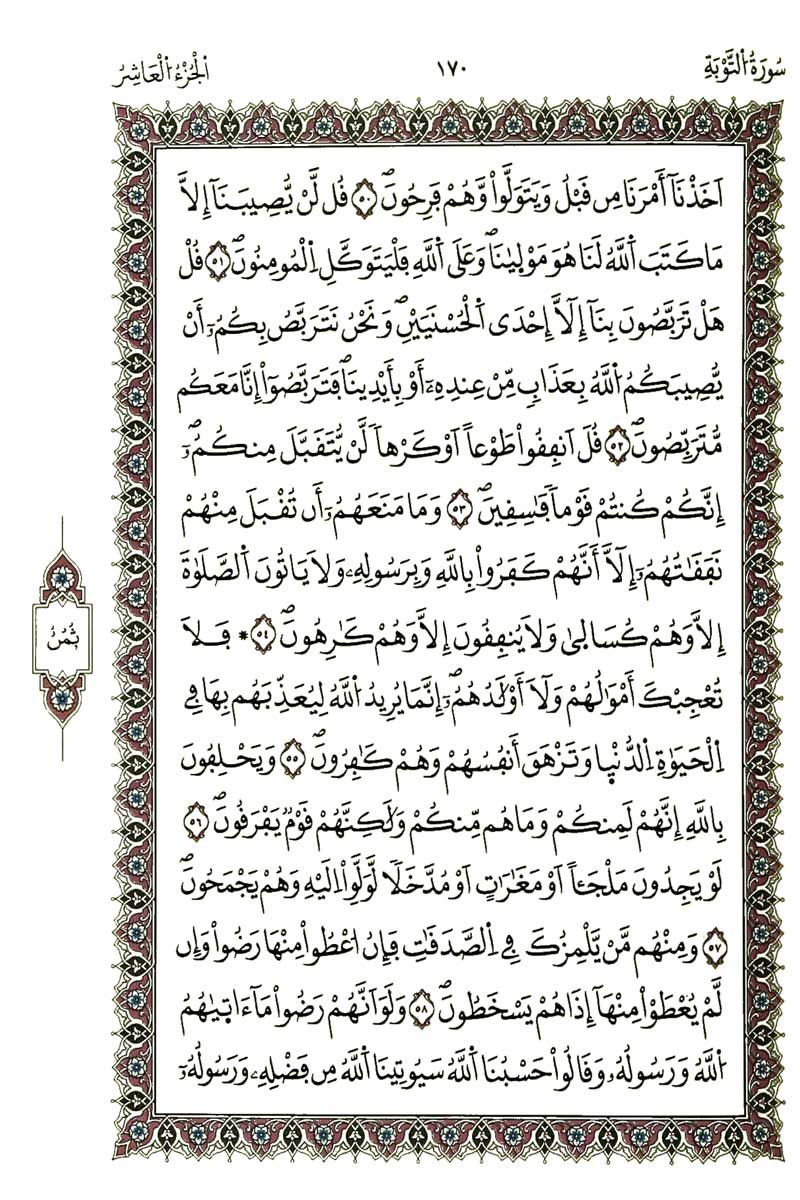 سُورَةُ التَّوْبَةِ
١٧٠
الْجُزْءُ الْعَاشِرُ
اَخَذْنَآ أَمْرَنَا مِن قَبْلُ وَيَتَوَلَّوا۟ وَّهُمْ فَرِحُونَۖ ٥٠ قُل لَّنْ يُّصِيبَنَآ إِلَّا
مَا كَتَبَ اَللَّهُ لَنَا هُوَ مَوْل۪يٰنَاۖ وَعَلَى اَللَّهِ فَلْيَتَوَكَّلِ اِلْمُومِنُونَۖ ٥١ قُلْ
هَلْ تَرَبَّصُونَ بِنَآ إِلَّآ إِحْدَى اَلْحُسْنَيَيْنِۖ وَنَحْنُ نَتَرَبَّصُ بِكُمُۥٓ أَنْ
يُّصِيبَكُمُ اُللَّهُ بِعَذَابٍ مِّنْ عِندِهِۦٓ أَوْ بِأَيْدِينَاۖ فَتَرَبَّصُوٓا۟ إِنَّا مَعَكُم
مُّتَرَبِّصُونَۖ ٥٢ قُلَ اَنفِقُوا۟ طَوْعاً اَوْ كَرْهاً لَّنْ يُّتَقَبَّلَ مِنكُمُۥٓۖ
إِنَّكُمْ كُنتُمْ قَوْماً فَٰسِقِينَۖ ٥٣ وَمَا مَنَعَهُمُۥٓ أَن تُقْبَلَ مِنْهُمْ
نَفَقَٰتُهُمُۥٓ إِلَّآ أَنَّهُمْ كَفَرُوا۟ بِاللَّهِ وَبِرَسُولِهِۦ وَلَا يَاتُونَ اَلصَّلَوٰةَ
إِلَّا وَهُمْ كُسَال۪ىٰ وَلَا يُنفِقُونَ إِلَّا وَهُمْ كَٰرِهُونَۖ ٥٤ * فَلَا
تُعْجِبْكَ أَمْوَٰلُهُمْ وَلَآ أَوْلَٰدُهُمُۥٓۖ إِنَّمَا يُرِيدُ اُللَّهُ لِيُعَذِّبَهُم بِهَا فِے
اِلْحَيَوٰةِ اِلدُّنْي۪ا وَتَزْهَقَ أَنفُسُهُمْ وَهُمْ كَٰفِرُونَۖ ٥٥ وَيَحْلِفُونَ
بِاللَّهِ إِنَّهُمْ لَمِنكُمْ وَمَا هُم مِّنكُمْ وَلَٰكِنَّهُمْ قَوْمٌ يَفْرَقُونَۖ ٥٦
لَوْ يَجِدُونَ مَلْجَـًٔا اَوْ مَغَٰرَٰتٍ اَوْ مُدَّخَلًا لَّوَلَّوِا۟ اِلَيْهِ وَهُمْ يَجْمَحُونَۖ
٥٧ وَمِنْهُم مَّنْ يَّلْمِزُكَ فِے اِلصَّدَقَٰتِ فَإِنُ اُعْطُوا۟ مِنْهَا رَضُوا۟ وَإِن
لَّمْ يُعْطَوْا۟ مِنْهَآ إِذَا هُمْ يَسْخَطُونَۖ ٥٨ وَلَوَ اَنَّهُمْ رَضُوا۟ مَآ ءَات۪يٰهُمُ
اُللَّهُ وَرَسُولُهُۥ وَقَالُوا۟ حَسْبُنَا اَللَّهُ سَيُوتِينَا اَللَّهُ مِن فَضْلِهِۦ وَرَسُولُهُۥٓ
ثُمُنُ